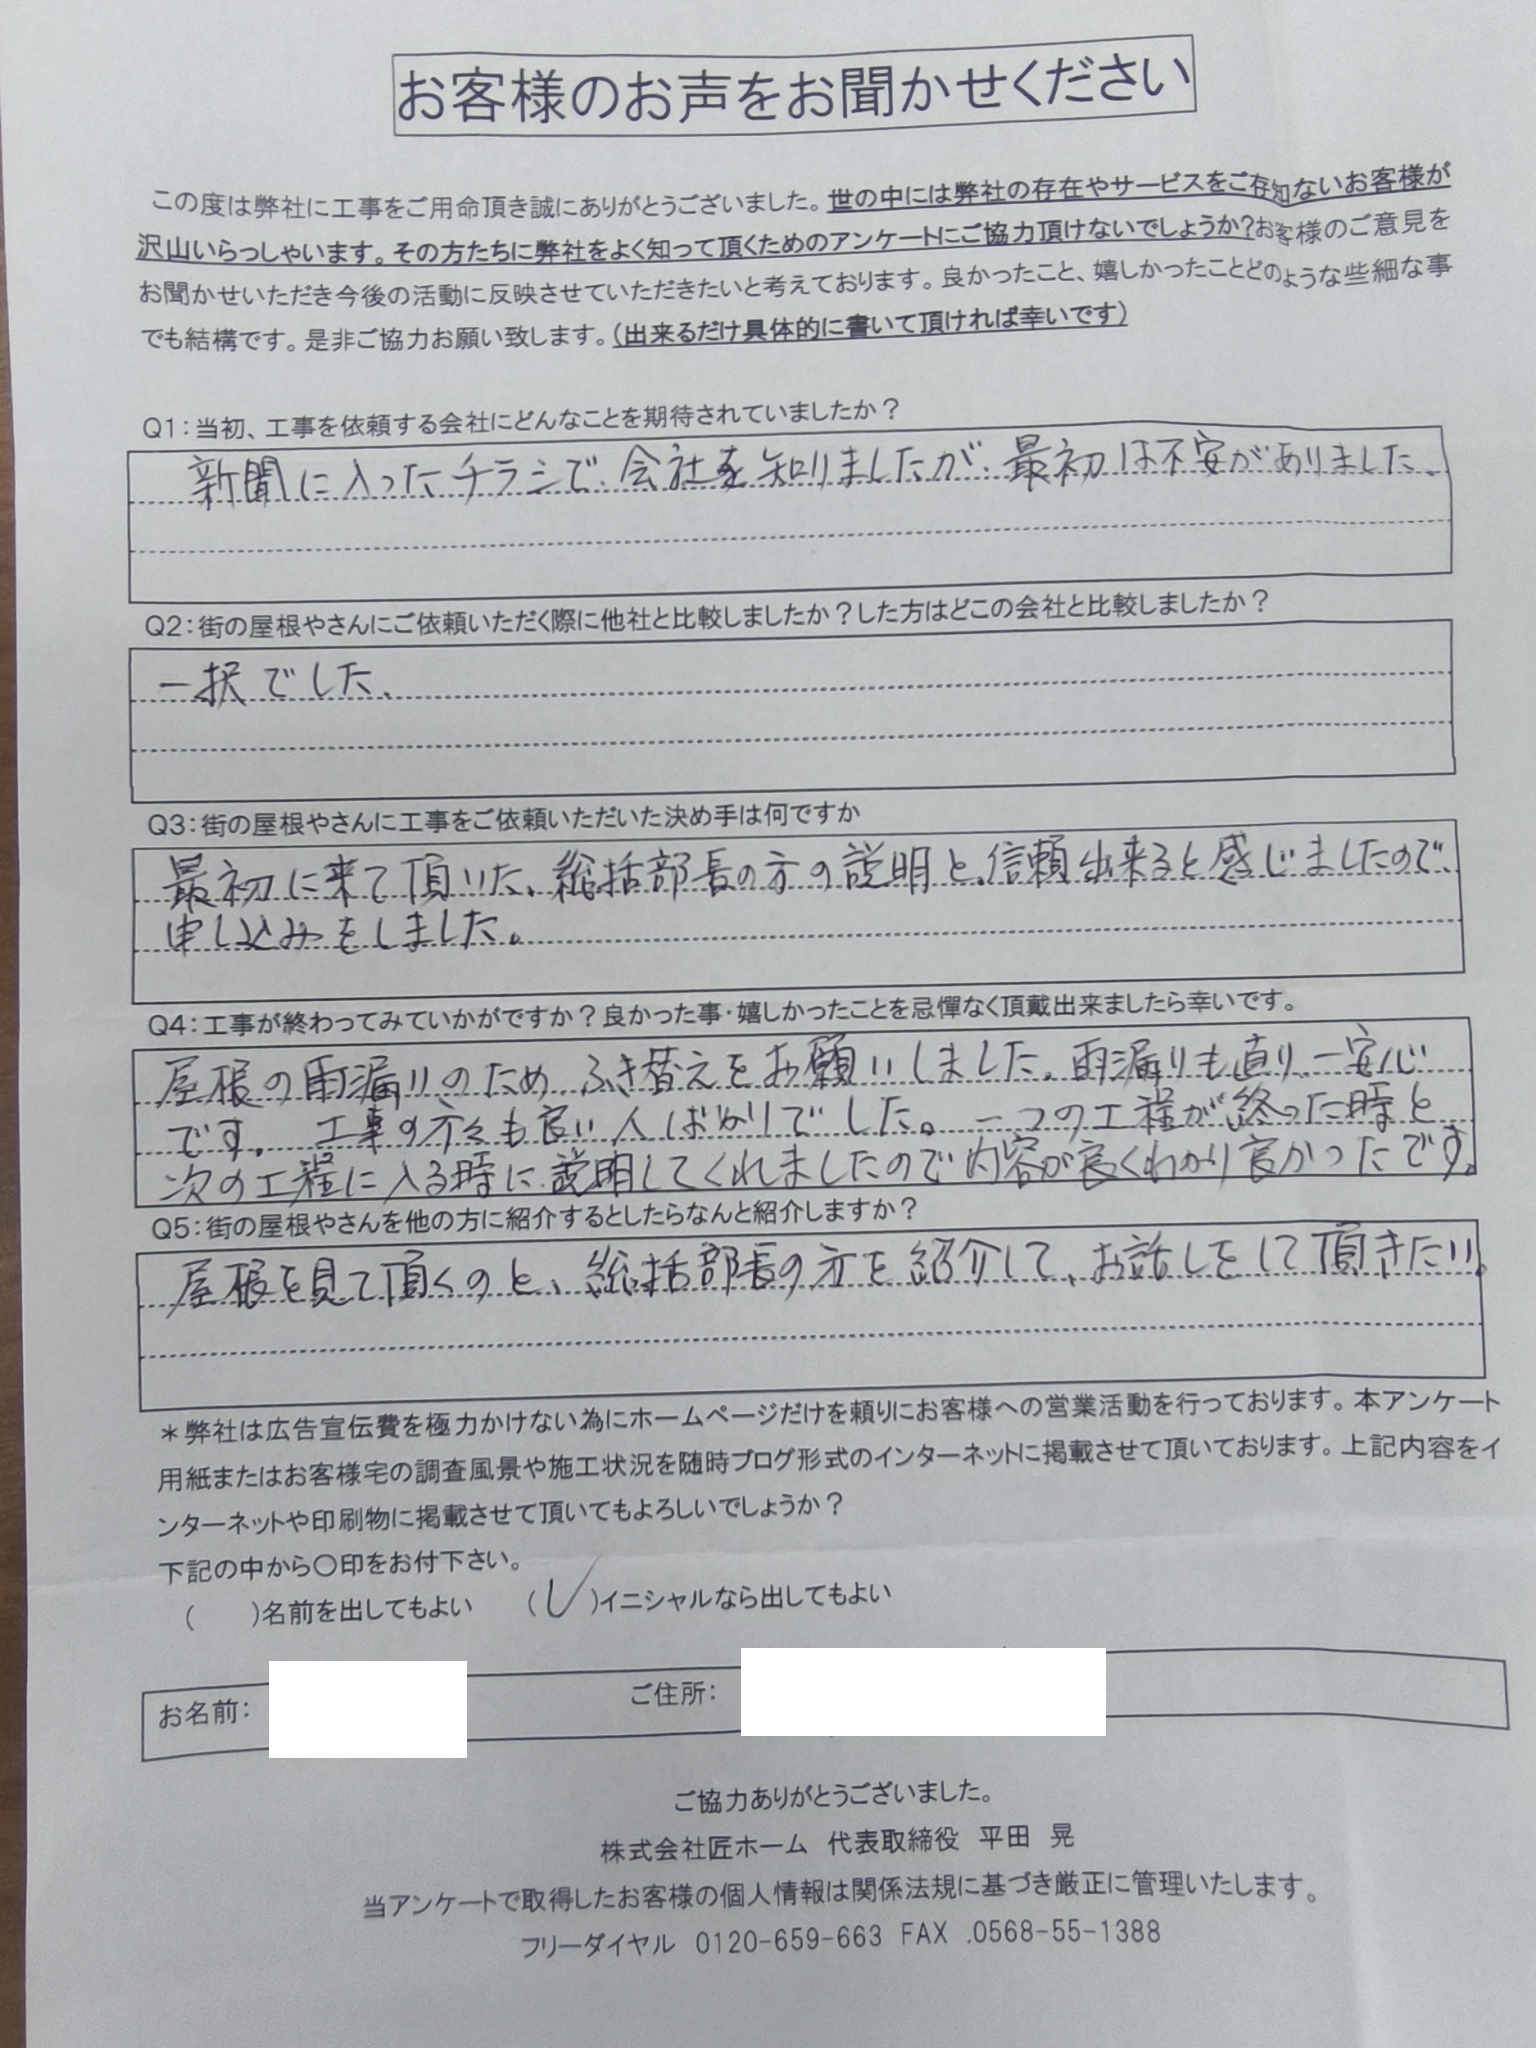 お客様のお声をお聞かせください
この度は弊社に工事をご用命頂き誠にありがとうございました。世の中には弊社の存在やサービスをご存知ないお客様が
沢山いらっしゃいます。その方たちに弊社をよく知って頂くためのアンケートにご協力頂けないでしょうか?お客様のご意見を
お聞かせいただき今後の活動に反映させていただきたいと考えております。良かったこと、嬉しかったことどのような些細な事
でも結構です。是非ご協力お願い致します。(出来るだけ具体的に書いて頂ければ幸いです)
Q1:当初、工事を依頼する会社にどんなことを期待されていましたか?
新聞に入ったチラシで、会社を知りましたが、最初は不安がありました。
Q2:街の屋根やさんにご依頼いただく際に他社と比較しましたか?した方はどこの会社と比較しましたか?
一択でした、
Q3:街の屋根やさんに工事をご依頼いただいた決め手は何ですか
最初に来て頂いた、総括部長の方の説明と、信頼出来ると感じましたので、
申し込みをしました。
Q4:工事が終わってみていかがですか?良かった事・嬉しかったことを忌憚なく頂戴出来ましたら幸いです。
屋根の雨漏りのため、ふき替えをお願いしました。雨漏りも直り、一安心
です。工事の方々も良い人ばかりでした。一つの工程が終った時と
次の工程に入る時に説明してくれましたので内容が良くわかり良かったです。
Q5:街の屋根やさんを他の方に紹介するとしたらなんと紹介しますか?
屋根を見て頂くのと、総括部長の方を紹介して、お話しをして頂きたい。
*弊社は広告宣伝費を極力かけない為にホームページだけを頼りにお客様への営業活動を行っております。本アンケート
用紙またはお客様宅の調査風景や施工状況を随時ブログ形式のインターネットに掲載させて頂いております。上記内容をイ
ンターネットや印刷物に掲載させて頂いてもよろしいでしょうか?
下記の中から○印をお付下さい。
( )名前を出してもよい (✓)イニシャルなら出してもよい
お名前: ご住所:
ご協力ありがとうございました。
株式会社匠ホーム 代表取締役 平田 晃
当アンケートで取得したお客様の個人情報は関係法規に基づき厳正に管理いたします。
フリーダイヤル 0120-659-663 FAX .0568-55-1388